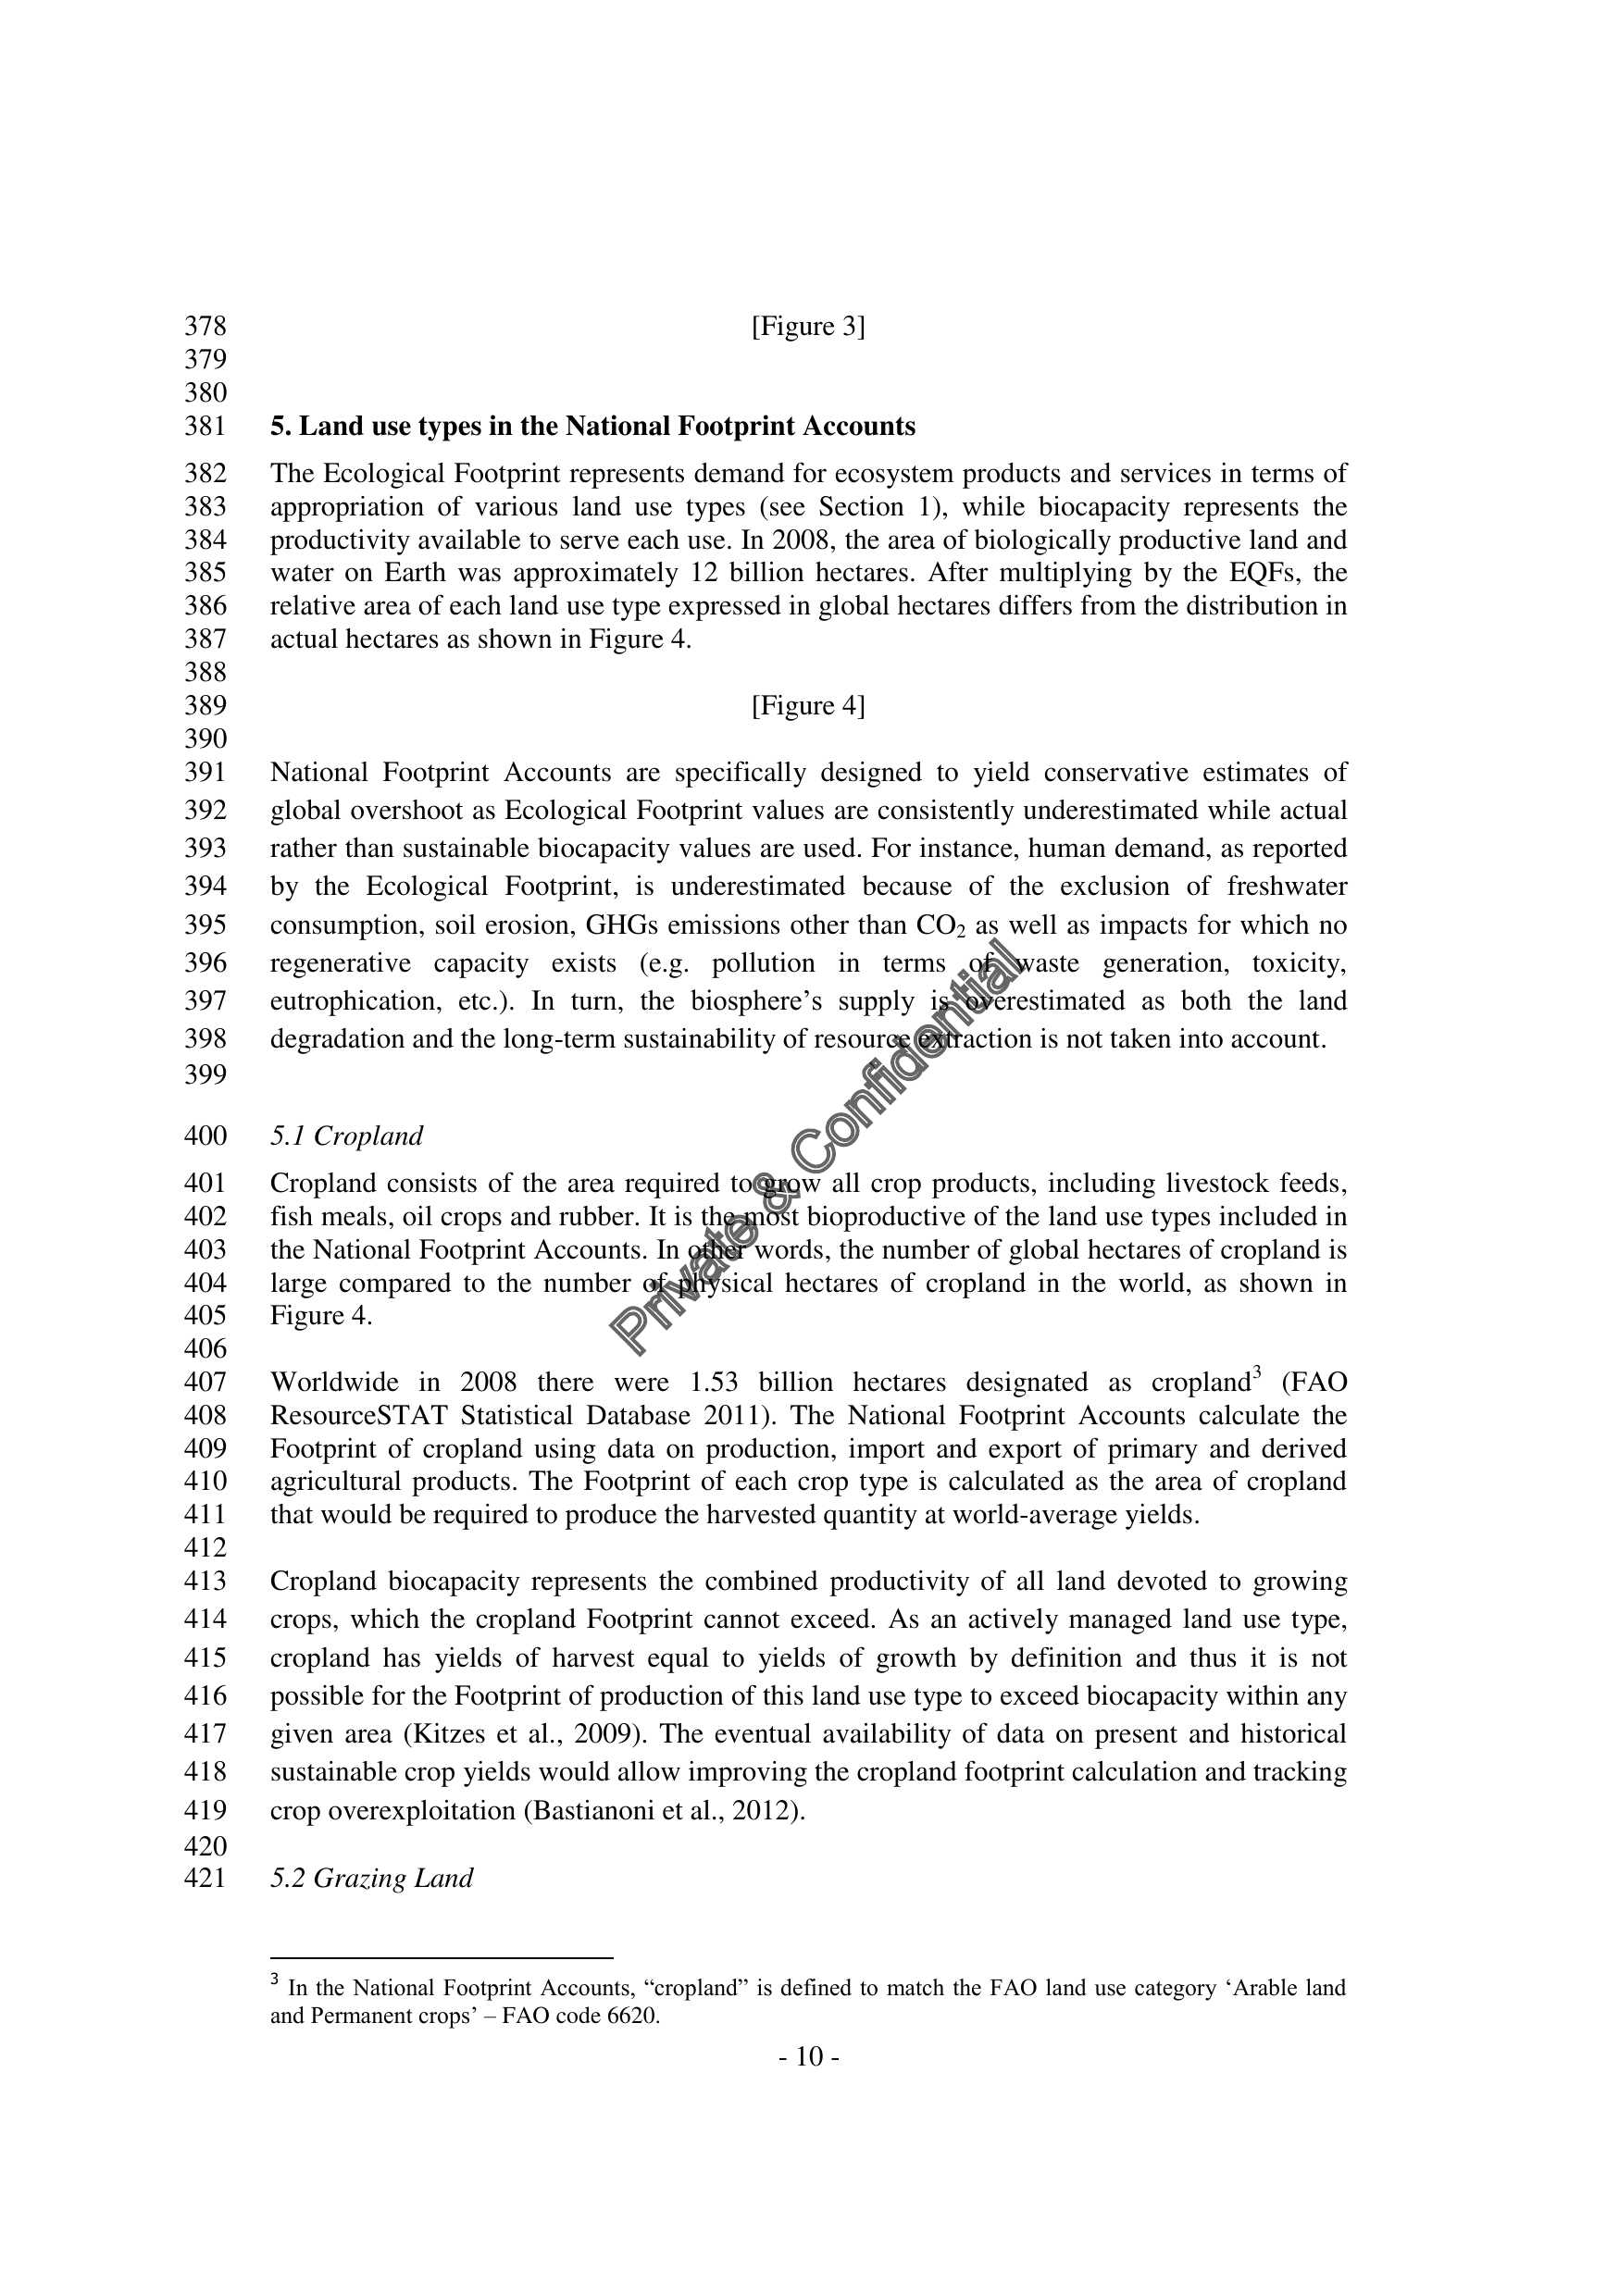 378 [Figure 3]
379
380
381 5. Land use types in the National Footprint Accounts
382 The Ecological Footprint represents demand for ecosystem products and services in terms of
383 appropriation of various land use types (see Section 1), while biocapacity represents the
384 productivity available to serve each use. In 2008, the area of biologically productive land and
385 water on Earth was approximately 12 billion hectares. After multiplying by the EQFs, the
386 relative area of each land use type expressed in global hectares differs from the distribution in
387 actual hectares as shown in Figure 4.
388
389 [Figure 4]
390
391 National Footprint Accounts are specifically designed to yield conservative estimates of
392 global overshoot as Ecological Footprint values are consistently underestimated while actual
393 rather than sustainable biocapacity values are used. For instance, human demand, as reported
394 by the Ecological Footprint, is underestimated because of the exclusion of freshwater
395 consumption, soil erosion, GHGs emissions other than CO₂ as well as impacts for which no
396 regenerative capacity exists (e.g. pollution in terms of waste generation, toxicity,
397 eutrophication, etc.). In turn, the biosphere’s supply is overestimated as both the land
398 degradation and the long-term sustainability of resource extraction is not taken into account.
399
400 5.1 Cropland
401 Cropland consists of the area required to grow all crop products, including livestock feeds,
402 fish meals, oil crops and rubber. It is the most bioproductive of the land use types included in
403 the National Footprint Accounts. In other words, the number of global hectares of cropland is
404 large compared to the number of physical hectares of cropland in the world, as shown in
405 Figure 4.
406
407 Worldwide in 2008 there were 1.53 billion hectares designated as cropland³ (FAO
408 ResourceSTAT Statistical Database 2011). The National Footprint Accounts calculate the
409 Footprint of cropland using data on production, import and export of primary and derived
410 agricultural products. The Footprint of each crop type is calculated as the area of cropland
411 that would be required to produce the harvested quantity at world-average yields.
412
413 Cropland biocapacity represents the combined productivity of all land devoted to growing
414 crops, which the cropland Footprint cannot exceed. As an actively managed land use type,
415 cropland has yields of harvest equal to yields of growth by definition and thus it is not
416 possible for the Footprint of production of this land use type to exceed biocapacity within any
417 given area (Kitzes et al., 2009). The eventual availability of data on present and historical
418 sustainable crop yields would allow improving the cropland footprint calculation and tracking
419 crop overexploitation (Bastianoni et al., 2012).
420
421 5.2 Grazing Land
³ In the National Footprint Accounts, “cropland” is defined to match the FAO land use category ‘Arable land
and Permanent crops’ – FAO code 6620.
- 10 -
Private & Confidential